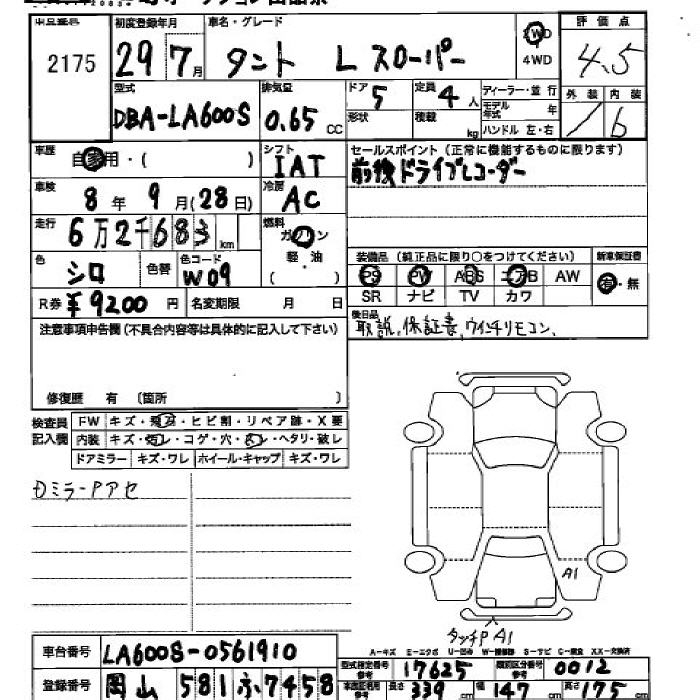 初度登録年月 車名・グレード 評価点
2175 29 7月 タント L スローパー 2WD 4WD 4.5
型式 排気量 ドア 5 定員 4人 ディーラー・並行 外装 内装
DBA-LA600S 0.65 CC 形状 積載 kg モデル年式 年 ハンドル 左・右 b
車歴 自家用・( ) シフト IAT セールスポイント(正常に機能するものに限ります)
前後ドライブレコーダー
車検 8年 9月(28日) 冷房 AC
走行 6万2千683km 燃料 ガソリン 軽・油 ( )
色 シロ 色替 色コード W09
装備品(純正品に限り○をつけてください) 新車保証書
PS PW ABS エアB AW 有・無
SR ナビ TV カワ
R券 ¥9200円 名変期限 月 日
後日品 取説、保証書、ウインチリモコン、
注意事項申告欄(不具合内容等は具体的に記入して下さい)
修復歴 有 〔箇所 〕
検査員記入欄 FW キズ・飛石・ヒビ割・リペア跡・X要
内装 キズ・汚レ・コゲ・穴・スレ・ヘタリ・破レ
ドアミラー キズ・ワレ ホイール・キャップ キズ・ワレ
DミラーPアセ
A1
タッチP A1
A-キズ E-エクボ U-凹み W-補修跡 S-サビ C-腐食 XX-交換済
車台番号 LA600S-0561910
型式指定番号 17625 類別区分番号 0012
登録番号 岡山 581 ふ 7458
車検証記載 参考 長さ 339 cm 幅 147 cm 高さ 175 cm